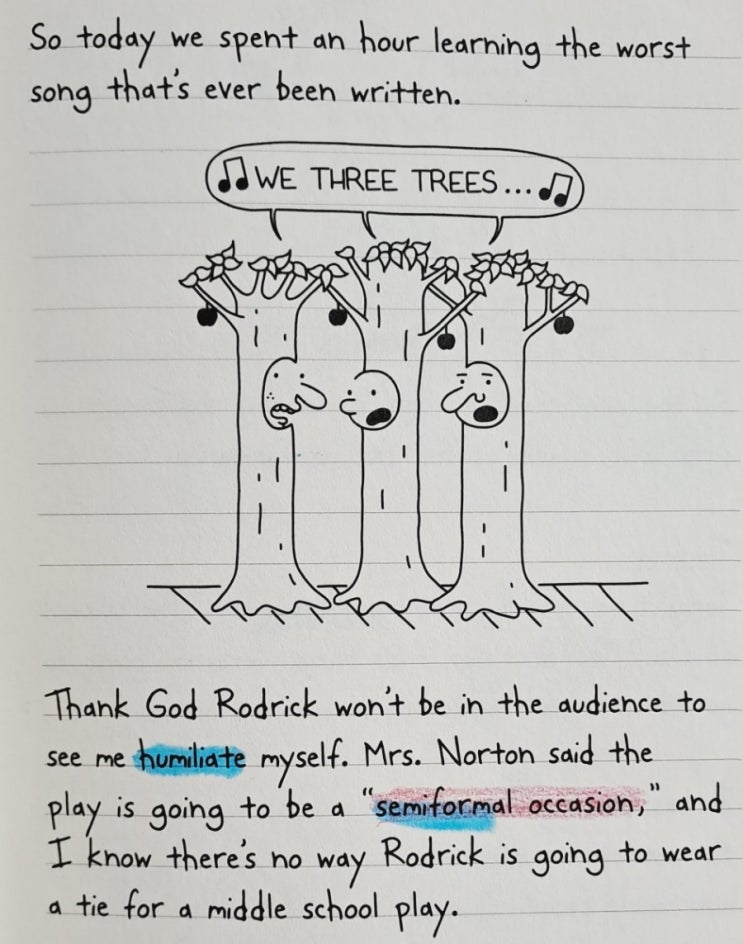 So today we spent an hour learning the worst
song that's ever been written.
WE THREE TREES...
Thank God Rodrick won't be in the audience to
see me humiliate myself. Mrs. Norton said the
play is going to be a "semiformal occasion," and
I know there's no way Rodrick is going to wear
a tie for a middle school play.